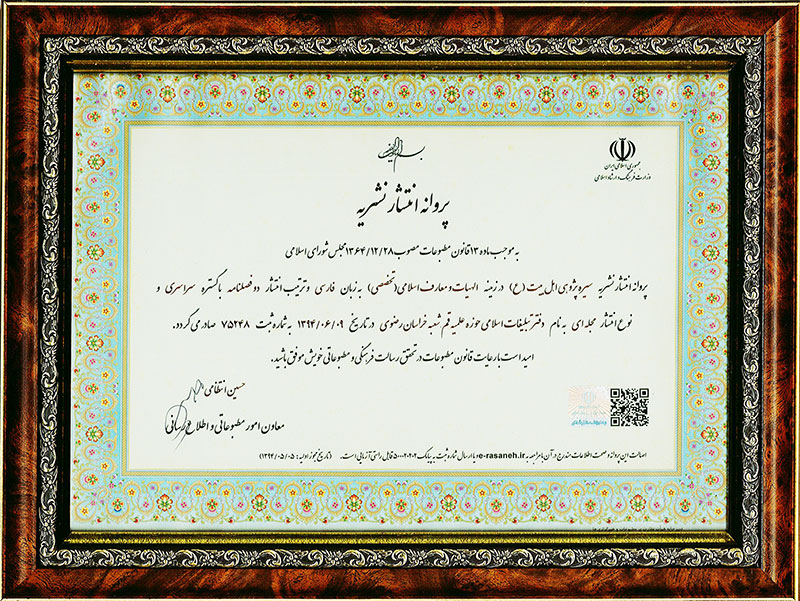 بسم الله الرحمن الرحیم
جمهوری اسلامی ایران
وزارت فرهنگ و ارشاد اسلامی
پروانه انتشار نشریه
به موجب ماده ۱۳ قانون مطبوعات مصوب ۱۳۶۴/۱۲/۲۸ مجلس شورای اسلامی
پروانه انتشار نشریه سیره پژوهی اهل بیت (ع) در زمینه الهیات و معارف اسلامی (تخصصی) به زبان فارسی و ترتیب انتشار دوفصلنامه با گستره سراسری و
نوع انتشار مجله ای به نام دفتر تبلیغات اسلامی حوزه علمیه قم شعبه خراسان رضوی در تاریخ ۱۳۹۴/۰۶/۰۹ به شماره ثبت ۷۵۲۴۸ صادر می گردد.
امید است با رعایت قانون مطبوعات در تحقق رسالت فرهنگی و مطبوعاتی خویش موفق باشید.
حسین انتظامی
معاون امور مطبوعاتی و اطلاع رسانی
اصالت این پروانه و صحت اطلاعات مندرج در آن با مراجعه به e-rasaneh.ir و با ارسال شماره ثبت به پیامک ۵۰۰۰۲۰۲۰۲ قابل راستی آزمایی است. (تاریخ مجوز اولیه: ۱۳۹۴/۰۵/۰۵)